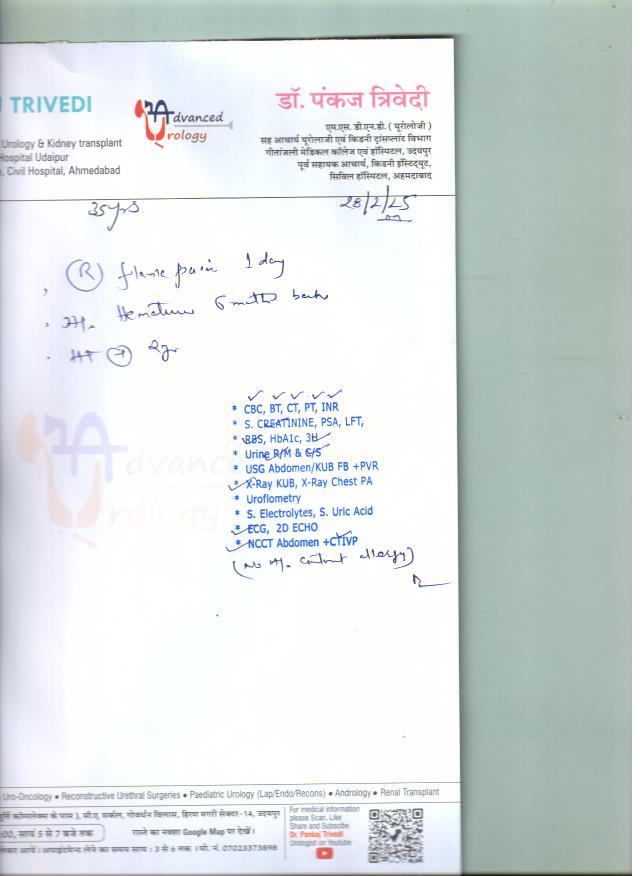 TRIVEDI
Advanced
Urology
Urology & Kidney transplant
Hospital Udaipur
, Civil Hospital, Ahmedabad
डॉ. पंकज त्रिवेदी
एम.एस. डी.एन.बी. ( यूरोलोजी )
सह आचार्य यूरोलोजी एवं किडनी ट्रांसप्लांट विभाग
गीतांजली मेडिकल कॉलेज एवं हॉस्पिटल, उदयपुर
पूर्व सहायक आचार्य, किडनी इंस्टिट्यूट,
सिविल हॉस्पिटल, अहमदाबाद
35yrs
28/2/25
(R) flank pain 1 day
Hematuria 6 month back
2yr
* CBC, BT, CT, PT, INR
* S. CREATININE, PSA, LFT,
* RBS, HbA1c, 3H
* Urine R/M & C/S
* USG Abdomen/KUB FB +PVR
* X-Ray KUB, X-Ray Chest PA
* Uroflometry
* S. Electrolytes, S. Uric Acid
* ECG, 2D ECHO
* NCCT Abdomen +CTIVP
(No H/o contrast allergy)
Advanced
Urology
Uro-Oncology • Reconstructive Urethral Surgeries • Paediatric Urology (Lap/Endo/Recons) • Andrology • Renal Transplant
कॉम्पलेक्स के पास ), सी.ए. सर्कल, गोवर्धन विलास, हिरण मगरी सेक्टर-14, उदयपुर
:00, सायं 5 से 7 बजे तक
रास्ते का नक्शा Google Map पर देखें।
लेकर आयें। अपाइंटमेन्ट लेने का समय सायं : 3 से 6 तक । मो. नं. 07023373898
For medical information
please Scan, Like
Share and Subscibe
Dr. Pankaj Trivedi
Urologist on Youtube